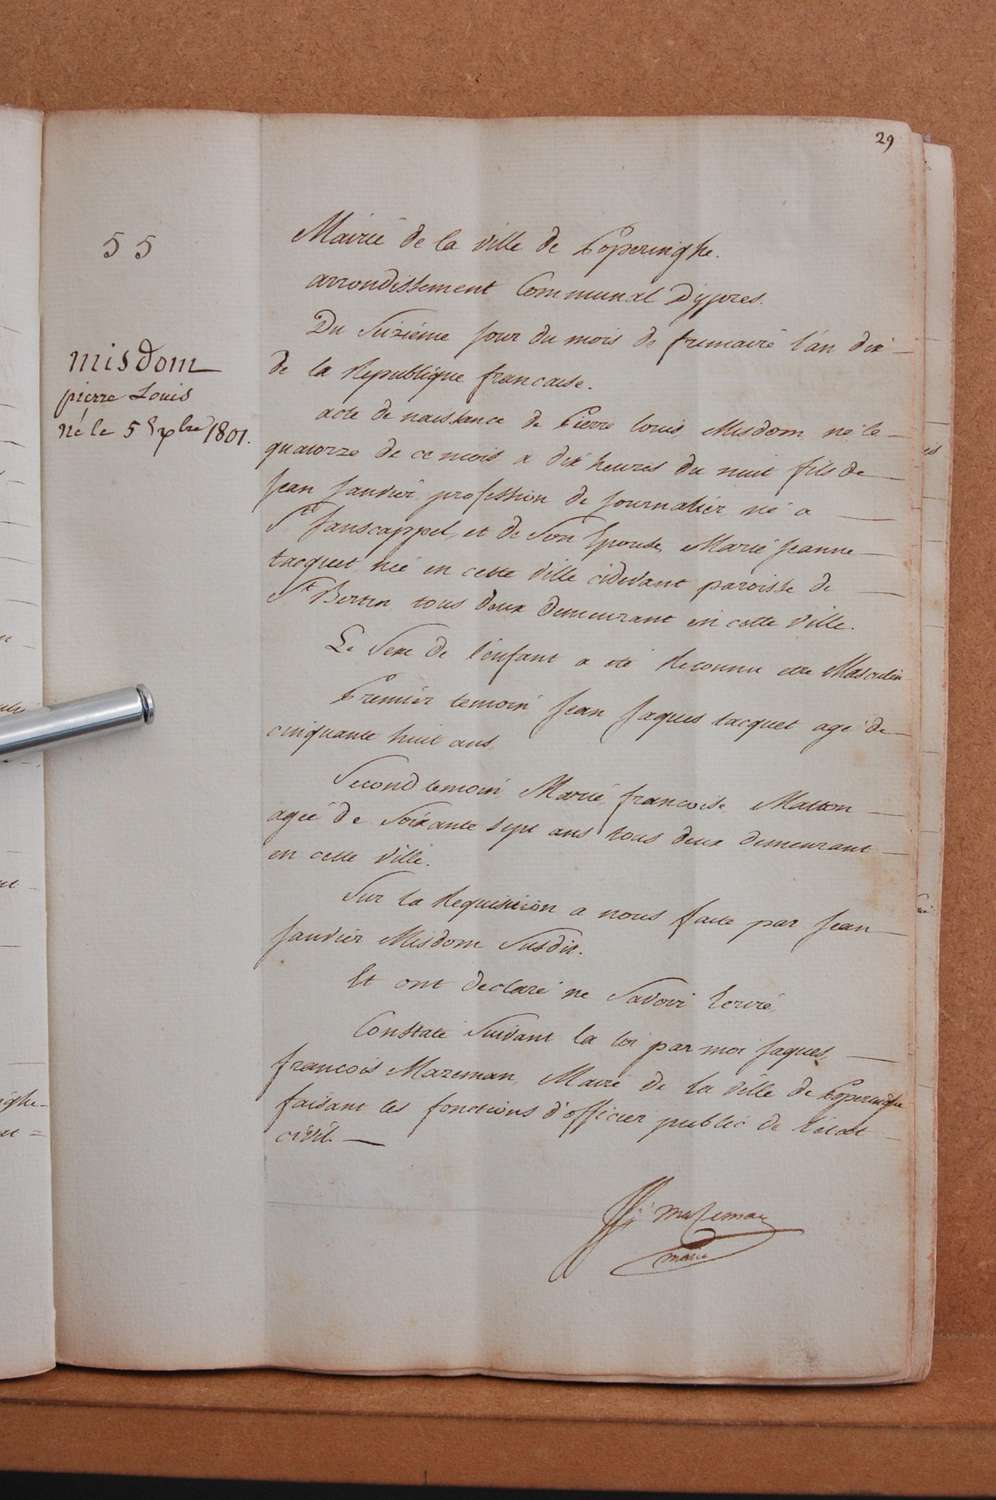 29
55
misdom
pierre Louis
né le 5 Xbre 1801.
Mairié de la ville de Poperinghe.
arrondissement Communal D'ypres.
Du Seiziéme Jour du mois de frumaire l'an dix
de la Republique francaise.
acte de naissance de Pierre louis Misdom né le
quatorze de ce mois a dix heures du nuit fils de
Jean Janvier, profession de Journalier né a
St Janscappel, et de Son Epouse, Marié Jeanne
tacquet née en cette ville cidevant paroisse de
St Bertin tous deux demeurant en cette ville.
Le Sexe de l'enfant a été Reconnu etre Masculin
Premier temoin Jean Jaques tacquet agé de
cinquante huit ans
Second temoin Marié francoise Matton
agée de Soixante sept ans tous deux demeurant
en cette ville.
Sur la Requisition a nous faite par Jean
Janvier Misdom Susdit.
Et ont declaré ne Savoir Ecrire
Constaté Suivant la loi par moi Jaques
francois Mazeman Maire de la ville de Poperinghe
faisant les fonctions d'officier public de l'etat
civil.
JJ mazeman
maire